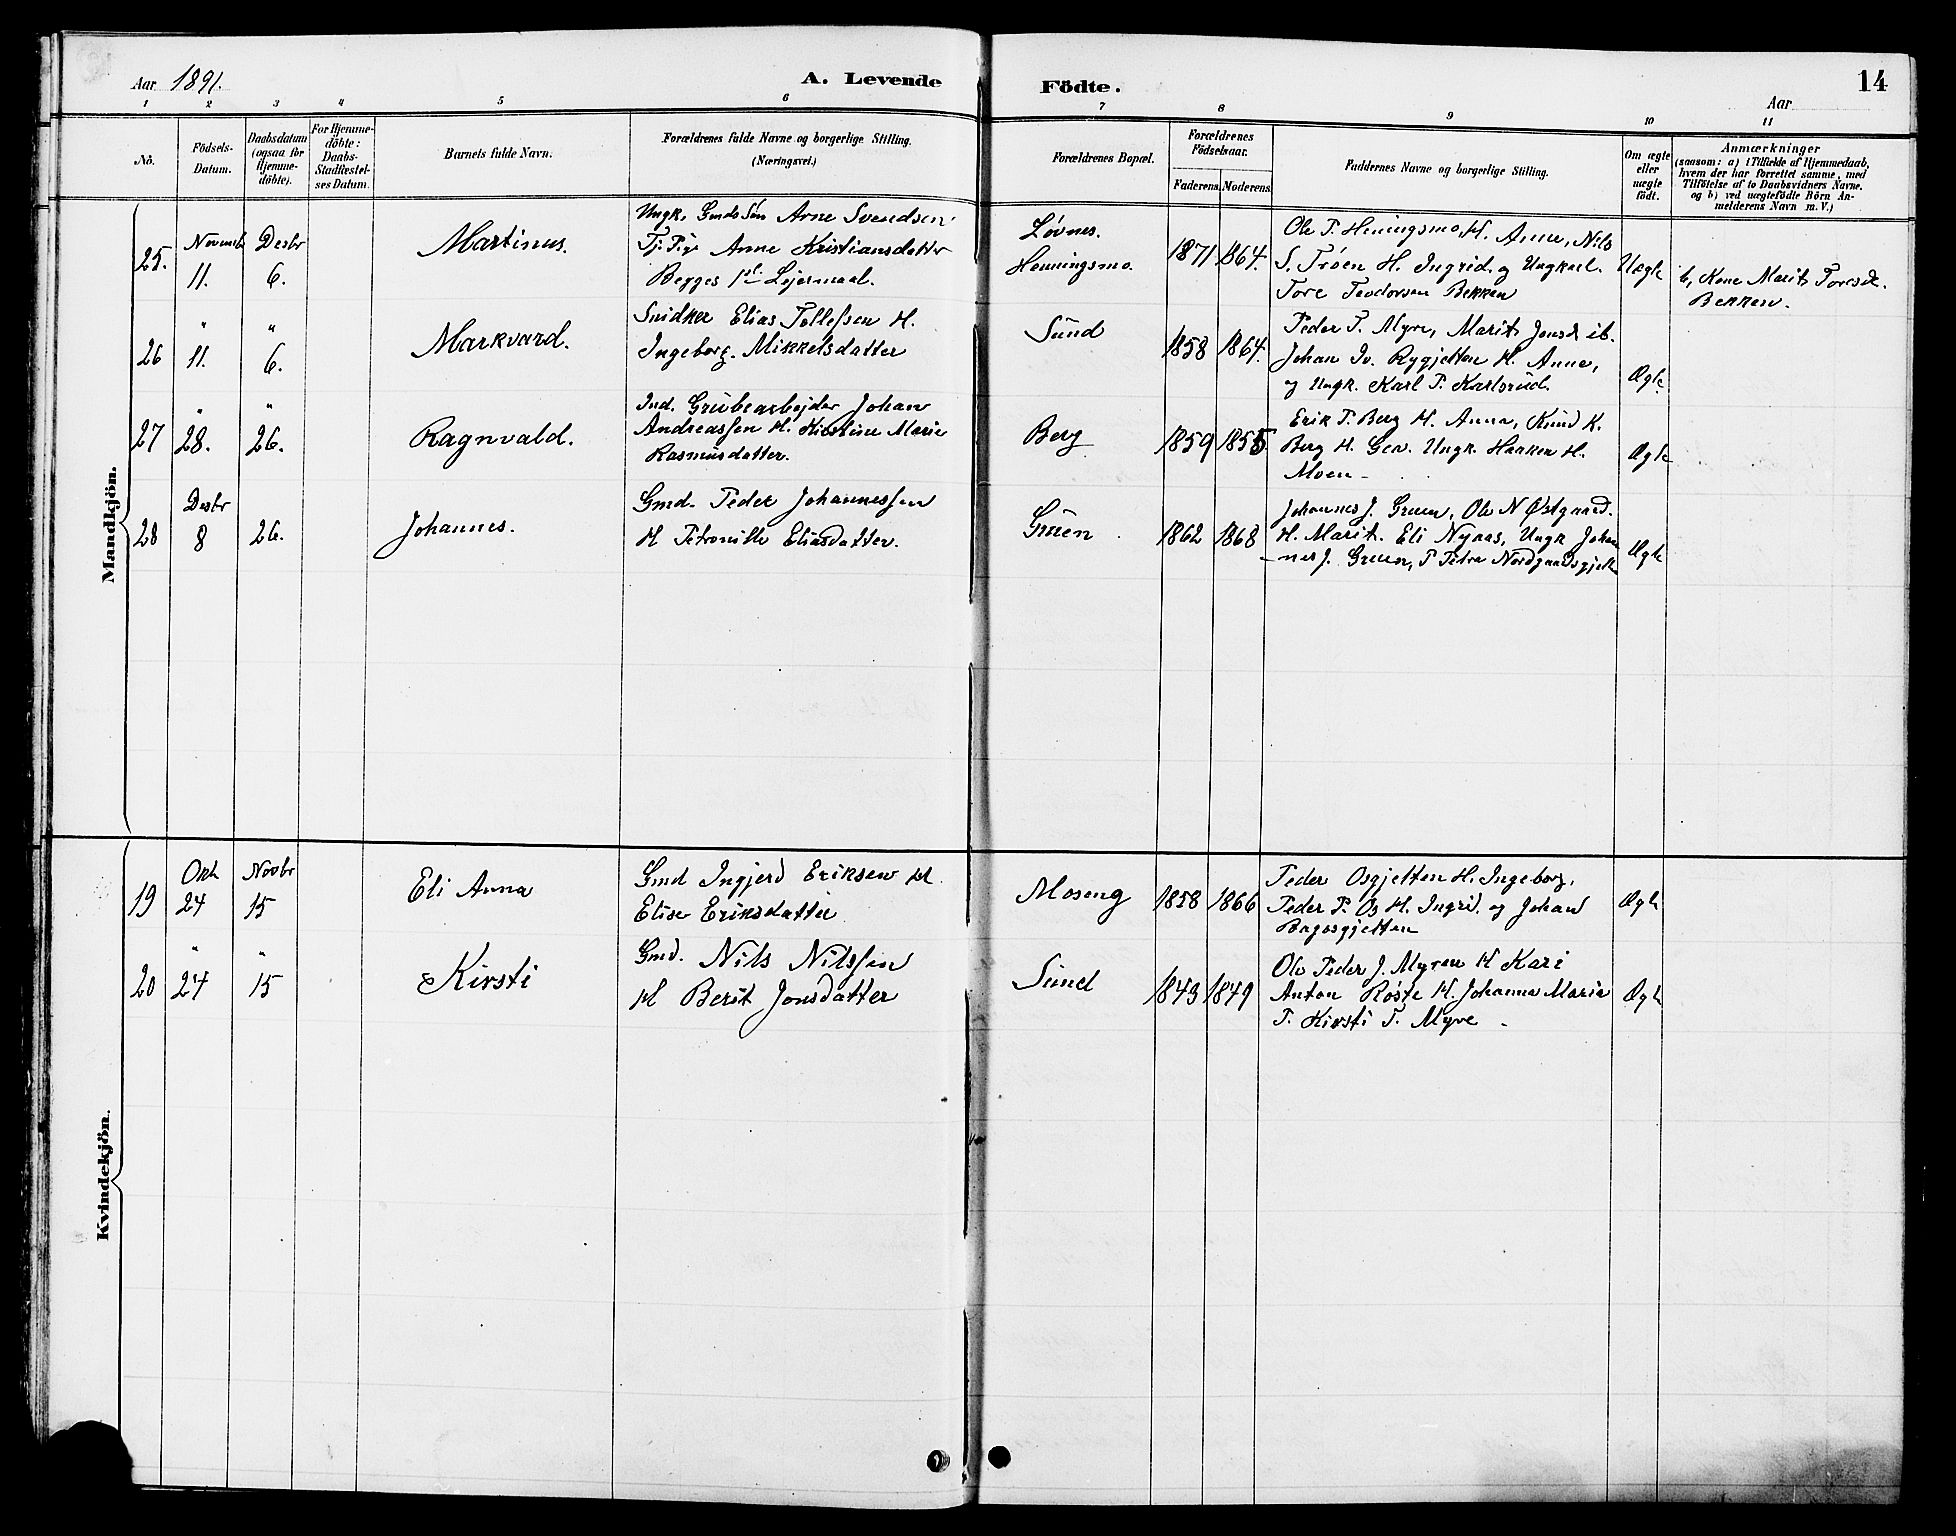 Aar 1891.
A. Levende
Födte.
14
Aar
1 2 3 4 5 6 7 8 9 10 11
No.
Födsels-
Datum.
Daabsdatum
(ogsaa for
Hjemme-
döbte).
For Hjemme-
döbte:
Daabs-
Stadfæstel-
ses Datum.
Barnets fulde Navn.
Forældrenes fulde Navne og borgerlige Stilling.
(Næringsvei.)
Forældrenes Bopæl.
Forældrenes
Födselsaar.
Faderens. Moderens.
Faddernes Navne og borgerlige Stilling.
Om ægte
eller
uægte
födt.
Anmærkninger
(saasom: a) i Tilfælde af Hjemmedaab,
hvem der har forrettet samme, med
Tilföielse af to Daabsvidners Navne.
og b) ved uægtefödte Börn An-
melderens Navn m. V.)
Mandkjön.
25.
Novemb
11.
Desbr
6.
Martinus.
Ungk. Gmds Søn Arne Svendsen
Tj. Pige Anne Kristiansdatter
Begges 1ste Lejermaal.
Løvnes.
Henningsmo.
1871 1864.
Ole P. Henningsmo, H. Anne, Nils
S. Trøen H. Ingrid. og Ungkarl.
Tore Teodorsen Bekken
Uægte
b, Kone Marit Toresd.
Bekken.
26
" 11.
" 6.
Markvard.
Snidker Elias Tollefsen H.
Ingeborg. Mikkelsdatter
Sund
1858 1864.
Peder T. Myre, Marit Jonsd ib.
Johan Iv. Rygjetten H. Anne,
og Ungk. Karl P. Karlsrud.
Ægte
27
" 28.
" 26.
Ragnvald.
Ind. Grubearbejder Johan
Andreassen H. Kirstine Marie
Rasmusdatter.
Berg
1859 1855
Erik P. Berg H. Anna, Knud K.
Berg H. Gea. Ungk. Haaken H.
Moen
Ægte
28
Desbr
8
26.
Johannes.
Gmd. Peder Johannessen
H Petronille Eliasdatter.
Gruen
1862 1868
Johannes J. Gruen, Ole N Østgaard.
H. Marit. Eli Nyaas, Ungk Johan
-nes J. Gruen, P Petra Nordgaardsgjelt
Ægte
Kvindekjön.
19
Okt
24
Novbr
15
Eli Anna
Gmd Ingjerd Eriksen H.
Elise Eriksdatter
Moseng
1858 1866
Peder Osgjetten H. Ingeborg.
Peder P. Os H. Ingrid. og Johan
Bagosgjetten
Ægte
20
" 24
" 15
Kirsti
Gmd. Nils Nilssen
H Berit Jonsdatter
Sund
1843 1849
Ole Peder J. Myren H Kari
Anton Røste H. Johanna Marie
P. Kirsti T. Myre
Ægte